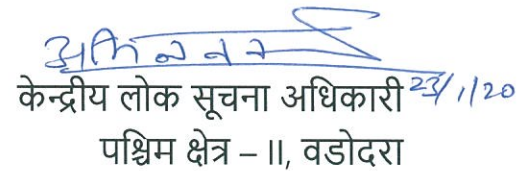 अभिनव
केन्द्रीय लोक सूचना अधिकारी 23/1/20
पश्चिम क्षेत्र – II, वडोदरा